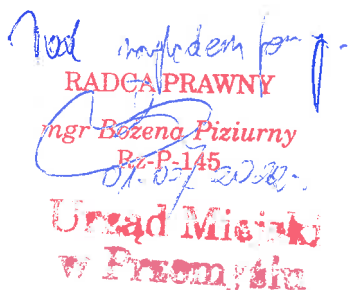 Pod względem
RADCA PRAWNY
mgr Bożena Piziurny
Rz-P-145
Urząd Miejski
w Przemyślu